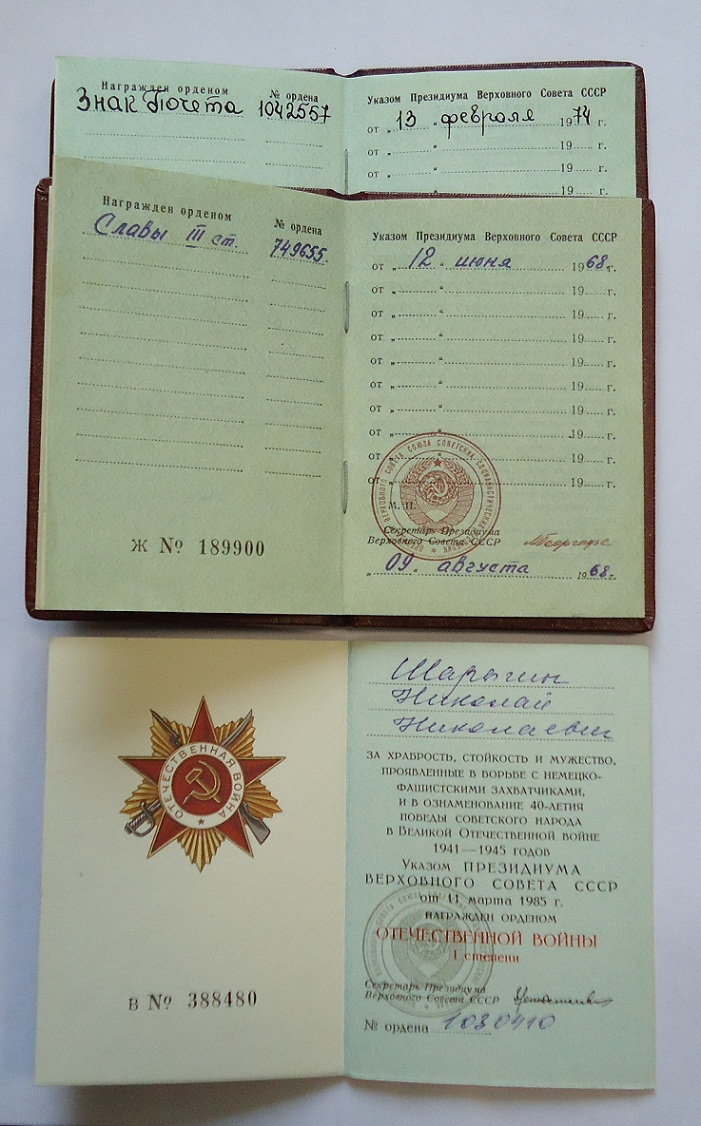 Награжден орденом
№ ордена
Знак Почета 1042557
Указом Президиума Верховного Совета СССР
от „ 13 " февраля 1974 г.
от „ " 19 г.
от „ " 19 г.
„ " 19 г.
Награжден орденом
№ ордена
Славы III ст. 749655.
Ж № 189900
Указом Президиума Верховного Совета СССР
от „ 12 " июня 1968 г.
от „ " 19 г.
от „ " 19 г.
от „ " 19 г.
от „ " 19 г.
от „ " 19 г.
от „ " 19 г.
от „ " 19 г.
от „ " 19 г.
от „ " 19 г.
М. П.
Секретарь Президиума
Верховного Совета СССР
„ 09. августа 1968 г.
ОТЕЧЕСТВЕННАЯ ВОЙНА
В № 388480
Шарыгин
Николай
Николаевич
ЗА ХРАБРОСТЬ, СТОЙКОСТЬ И МУЖЕСТВО,
ПРОЯВЛЕННЫЕ В БОРЬБЕ С НЕМЕЦКО-
ФАШИСТСКИМИ ЗАХВАТЧИКАМИ,
И В ОЗНАМЕНОВАНИЕ 40-ЛЕТИЯ
ПОБЕДЫ СОВЕТСКОГО НАРОДА
В ВЕЛИКОЙ ОТЕЧЕСТВЕННОЙ ВОЙНЕ
1941—1945 ГОДОВ
УКАЗОМ ПРЕЗИДИУМА
ВЕРХОВНОГО СОВЕТА СССР
от 11 марта 1985 г.
НАГРАЖДЕН ОРДЕНОМ
ОТЕЧЕСТВЕННОЙ ВОЙНЫ
I степени
Секретарь Президиума
Верховного Совета СССР
№ ордена 1030410